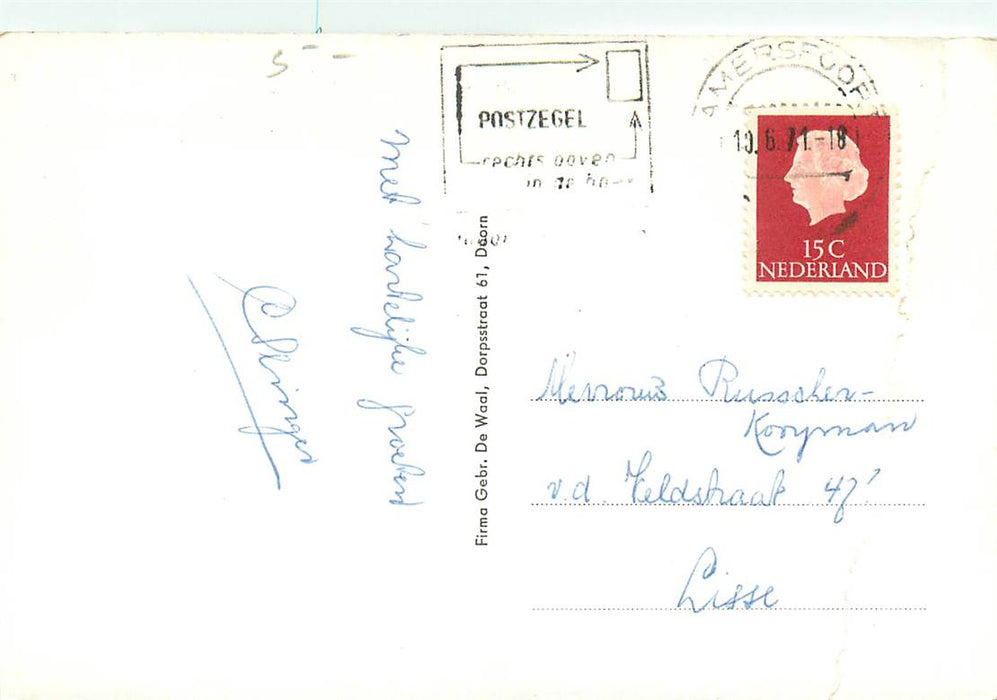 5 -
POSTZEGEL
rechts boven
in de ho
AMERSFOORT
10.6.71.-18
15C
NEDERLAND
Met hartelijke groeten
Firma Gebr. De Waal, Dorpsstraat 61, Doorn
Mevrouw Russcher-
Kooyman
v.d. Veldstraat 47
Lisse